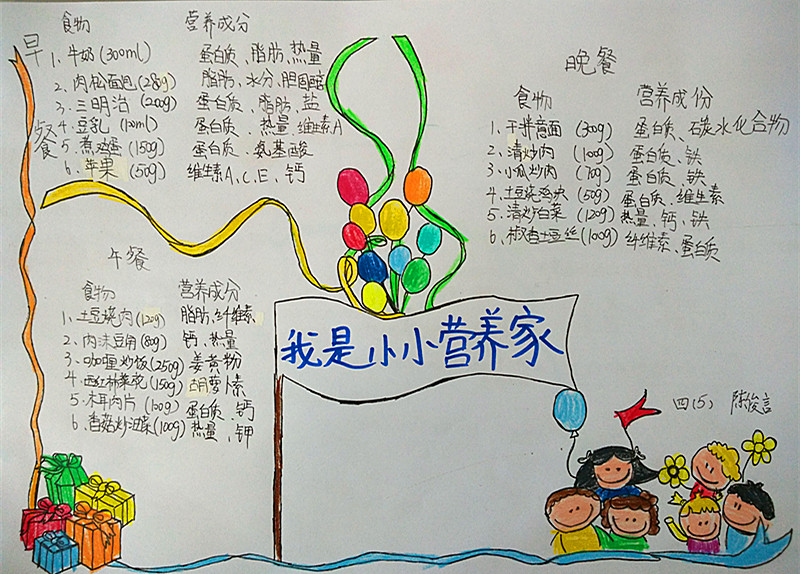 早餐
食物 营养成分
1、牛奶(300ml) 蛋白质、脂肪、热量
2、肉松面包(28g) 脂肪、水分、胆固醇
3、三明治(200g) 蛋白质、脂肪、盐
4、豆乳(120ml) 蛋白质、热量 维生素A
5、煮鸡蛋(150g) 蛋白质、氨基酸
6、苹果(50g) 维生素A、C、E、钙
午餐
食物 营养成分
1、土豆烧肉(120g) 脂肪、纤维素
2、肉沫豆角(80g) 钙、热量
3、咖喱炒饭(250g) 姜黄粉
4、西红柿菜花(150g) 胡萝卜素
5、木耳肉片(100g) 蛋白质、钙
6、香菇炒油菜(100g) 热量、钾
晚餐
食物 营养成份
1、干拌意面(300g) 蛋白质、碳水化合物
2、清炒肉(100g) 蛋白质、铁
3、小瓜炒肉(70g) 蛋白质、铁
4、土豆烧鸡块(50g) 蛋白质、维生素
5、清炒白菜(120g) 热量、钙、铁
6、椒香土豆丝(100g) 纤维素、蛋白质
我是小小营养家
四(5) 陈俊言